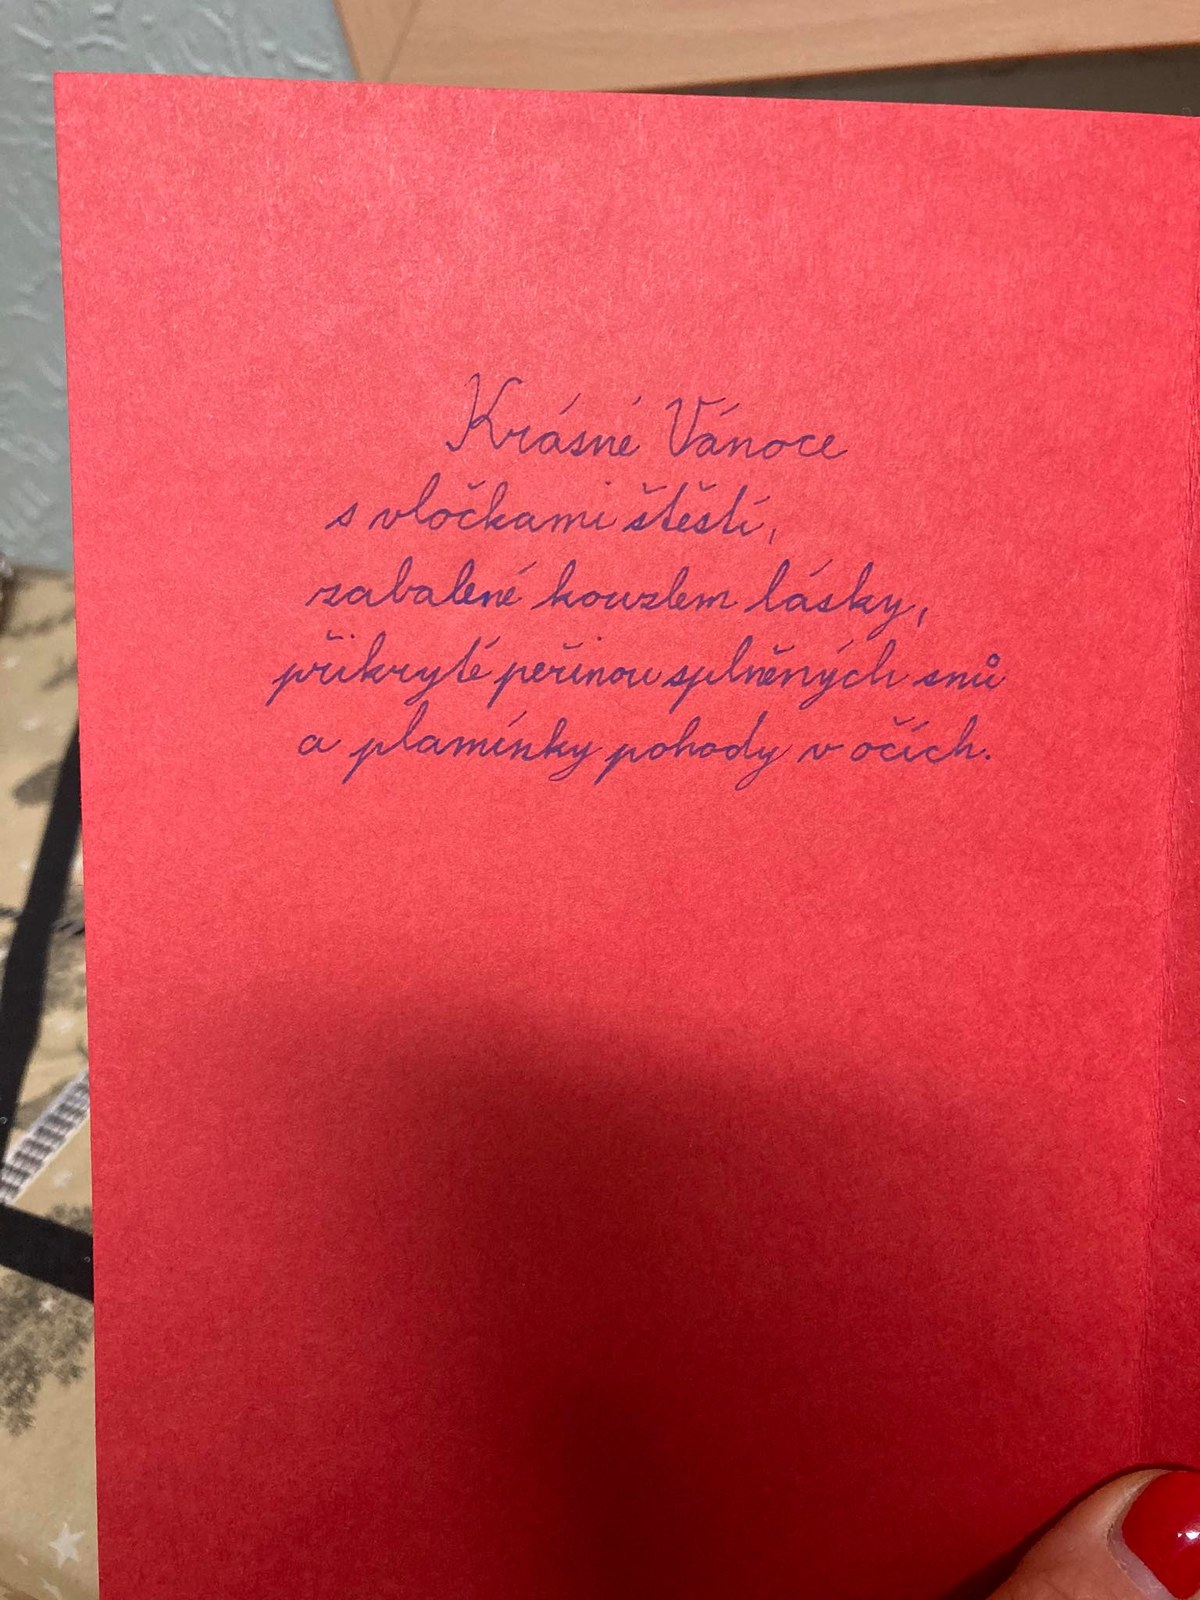 Krásné Vánoce
s vločkami štěstí,
zabalené kouzlem lásky,
přikryté peřinou splněných snů
a plamínky pohody v očích.